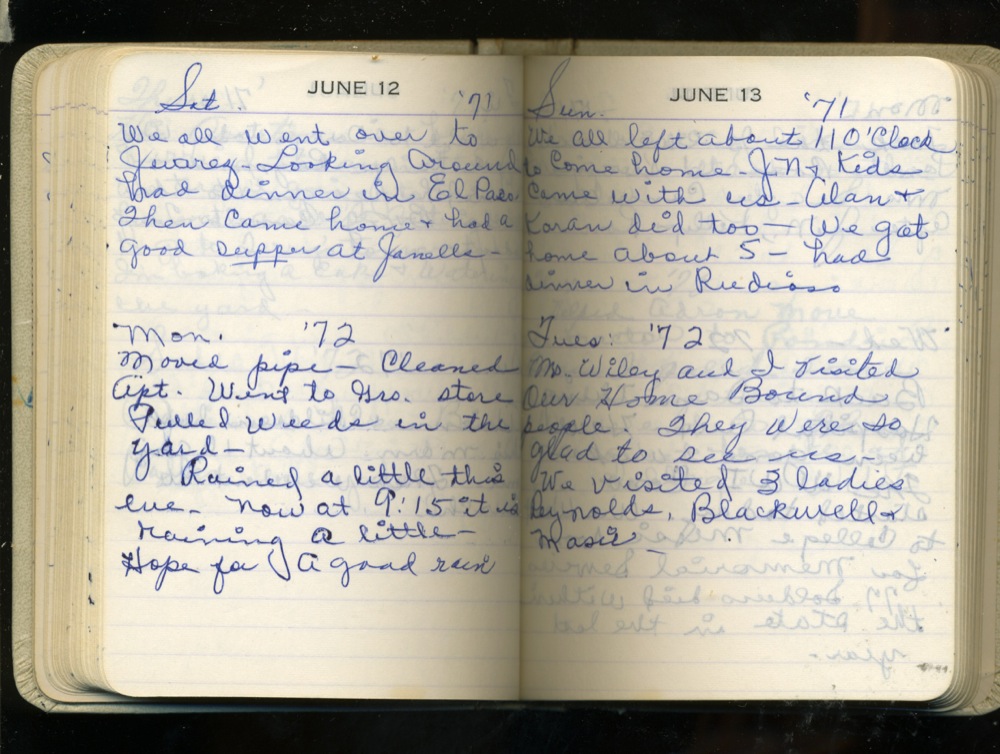 JUNE 12
Sat. '71
We all went over to
Juarez - Looking Around
had dinner in El Paso
Then Came home & had a
good supper at Janells -
Mon. '72
Moved pipe - Cleaned
Apt. Went to Gro. store
Pulled weeds in the
yard -
Rained a little this
eve. Now at 9:15 it is
raining a little -
Hope for A good rain
JUNE 13
Sun. '71
We all left about 11 O'Clock
to Come home - J.N & Kids
Came with us - Alan &
Koran did too - We got
home about 5 - had
dinner in Ruidioso
Tues: '72
Mr. Wiley and I visited
Our Home Bound
people. They were so
glad to see us -
We visited 3 ladies
Reynolds, Blackwell &